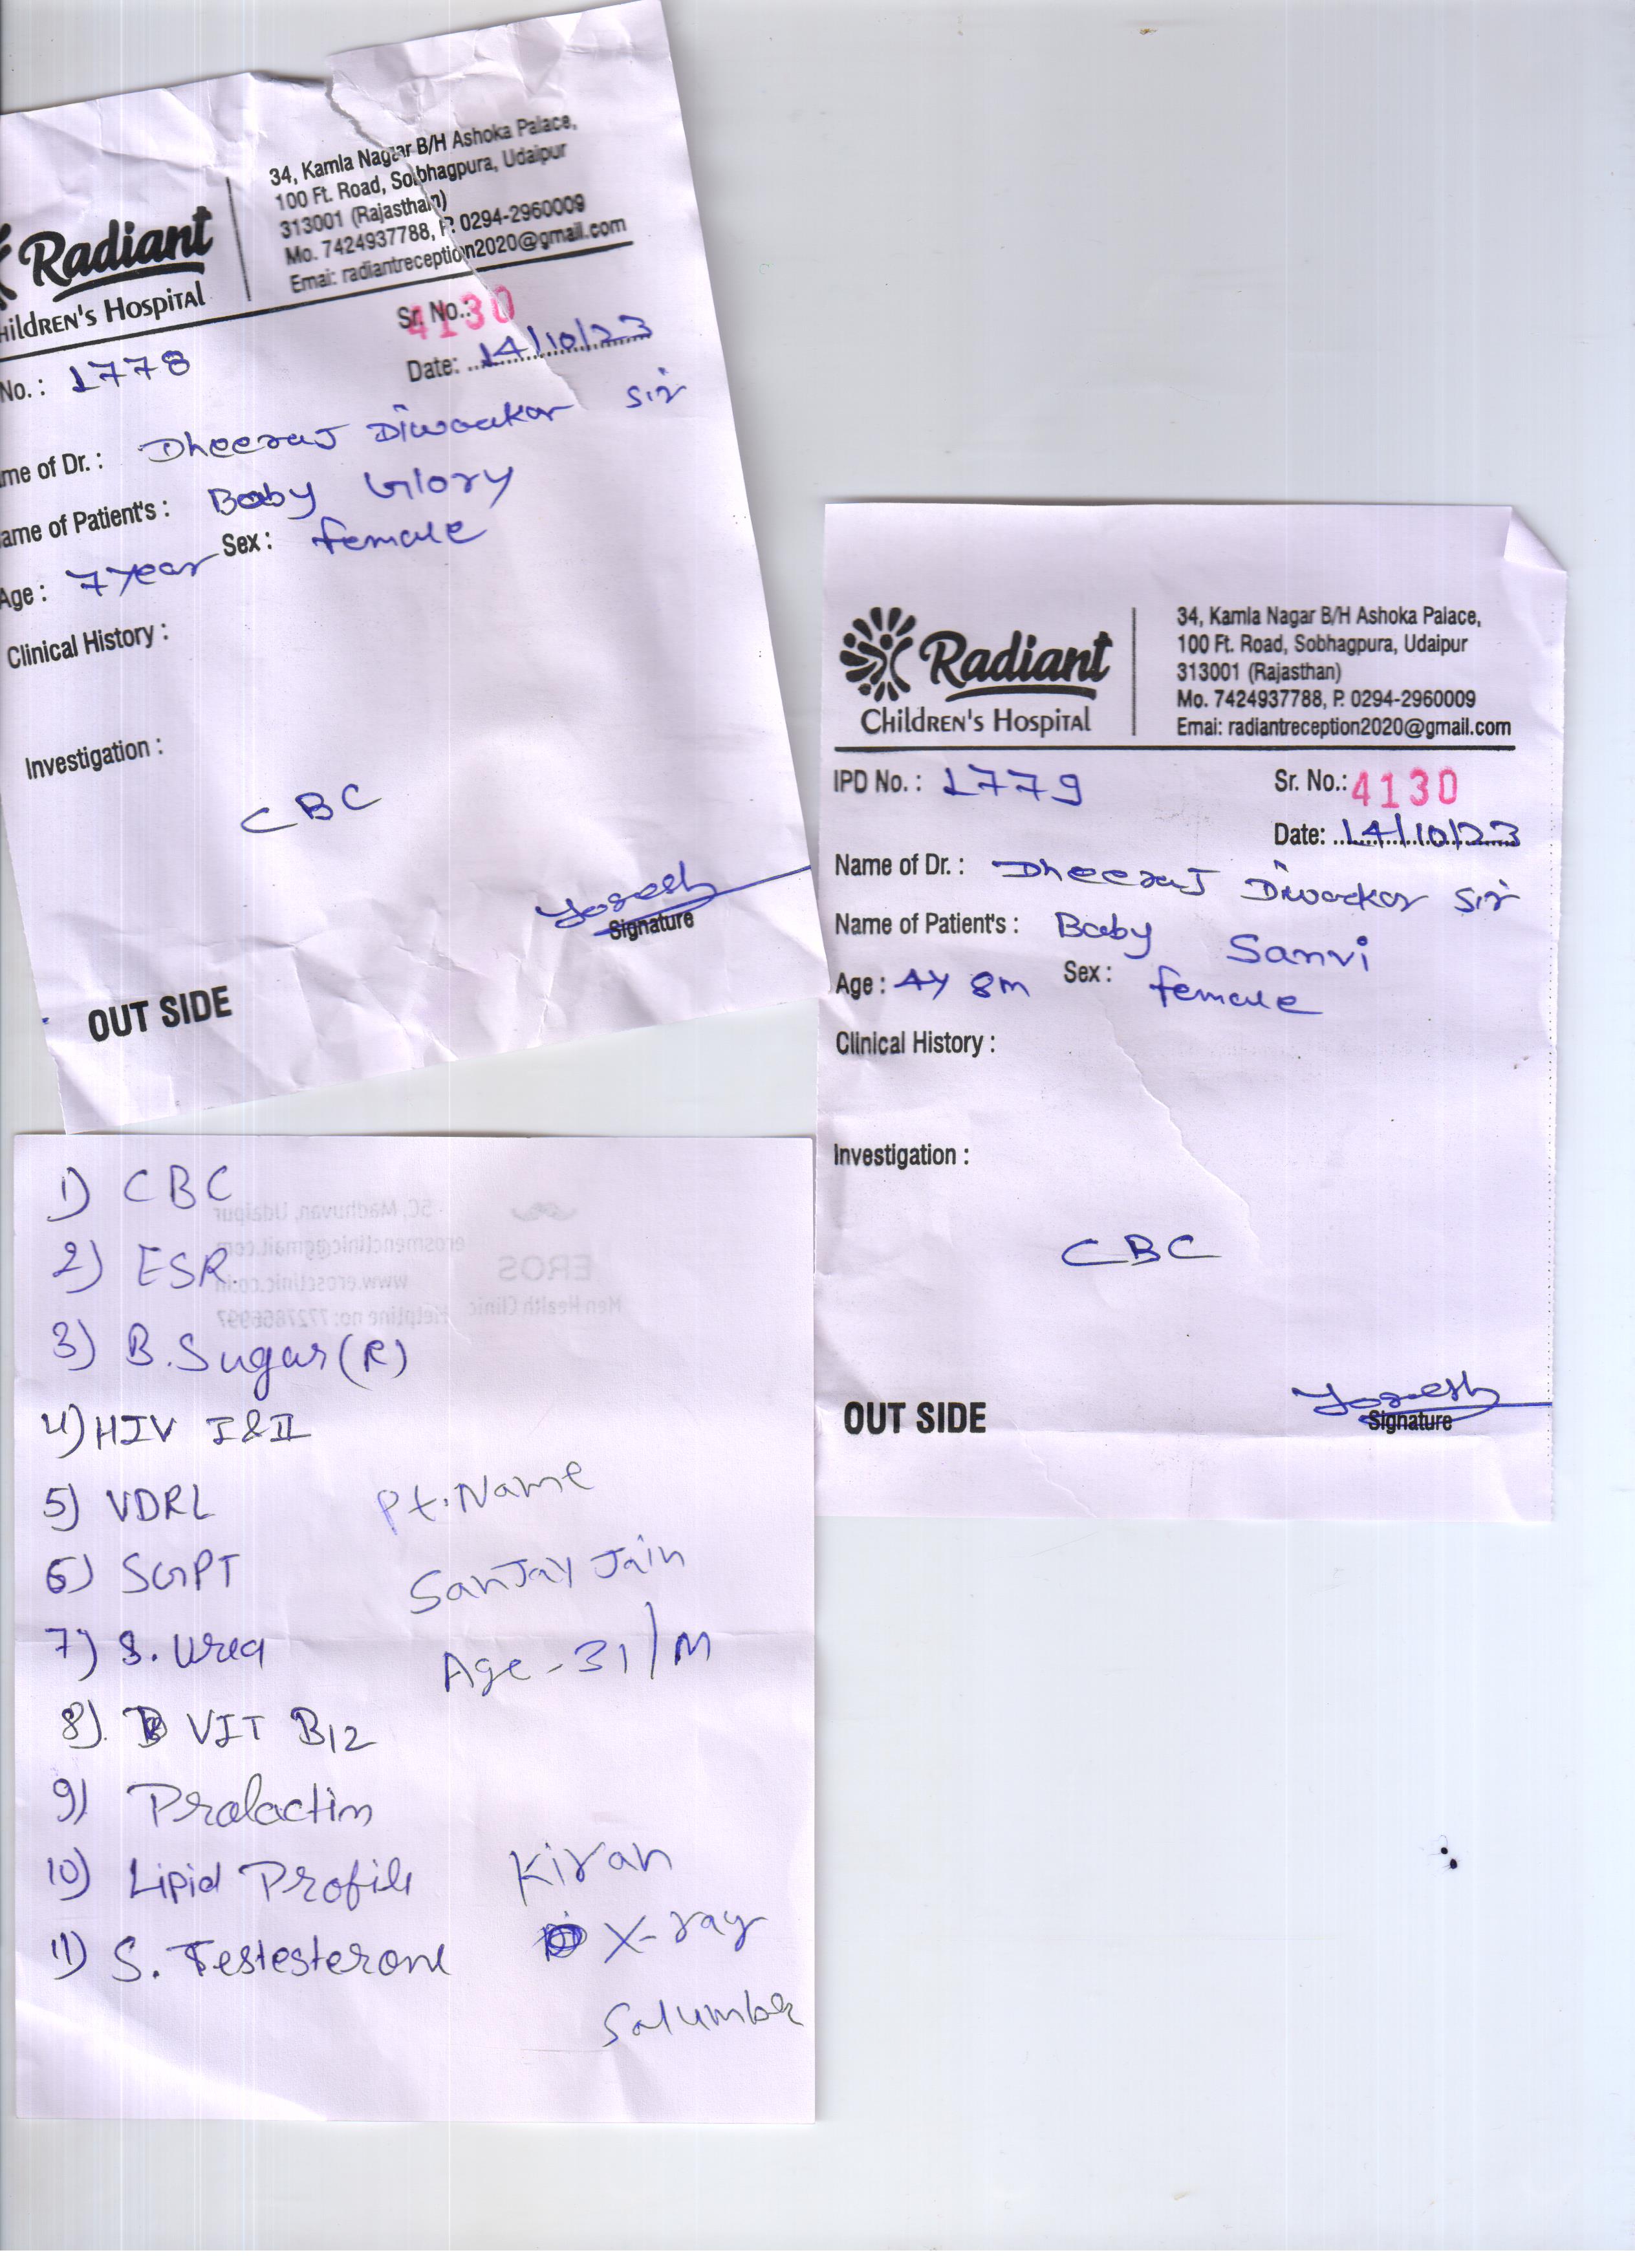 Radiant
hildren's Hospital
34, Kamla Nagar B/H Ashoka Palace,
100 Ft. Road, Sobhagpura, Udaipur
313001 (Rajasthan)
Mo. 7424937788, P. 0294-2960009
Emai: radiantreception2020@gmail.com
Sr. No.: 4130
No. : 1778
Date: 14/10/23
me of Dr. : Dheeraj Diwakar Sir
ame of Patient's : Baby Glory
Age : 7 year Sex : female
Clinical History :
Investigation :
CBC
Signature
OUT SIDE
Radiant
Children's Hospital
34, Kamla Nagar B/H Ashoka Palace,
100 Ft. Road, Sobhagpura, Udaipur
313001 (Rajasthan)
Mo. 7424937788, P. 0294-2960009
Emai: radiantreception2020@gmail.com
IPD No. : 1779
Sr. No.: 4130
Date: 14/10/23
Name of Dr. : Dheeraj Diwakar Sir
Name of Patient's : Baby Sanvi
Age : 4y 8m Sex : female
Clinical History :
Investigation :
CBC
Signature
OUT SIDE
1) CBC
2) ESR
3) B.Sugar (R)
4) HIV I & II
5) VDRL
6) SGPT
7) S. Urea
8) VIT B12
9) Prolactin
10) Lipid Profile
11) S. Testesterone
Pt. Name
Sanjay Jain
Age - 31/M
Kiran
X-ray
Salumber
EROS
Men Health Clinic
5C, Madhuvan, Udaipur
erosmensclinic@gmail.com
www.erosclinic.co.in